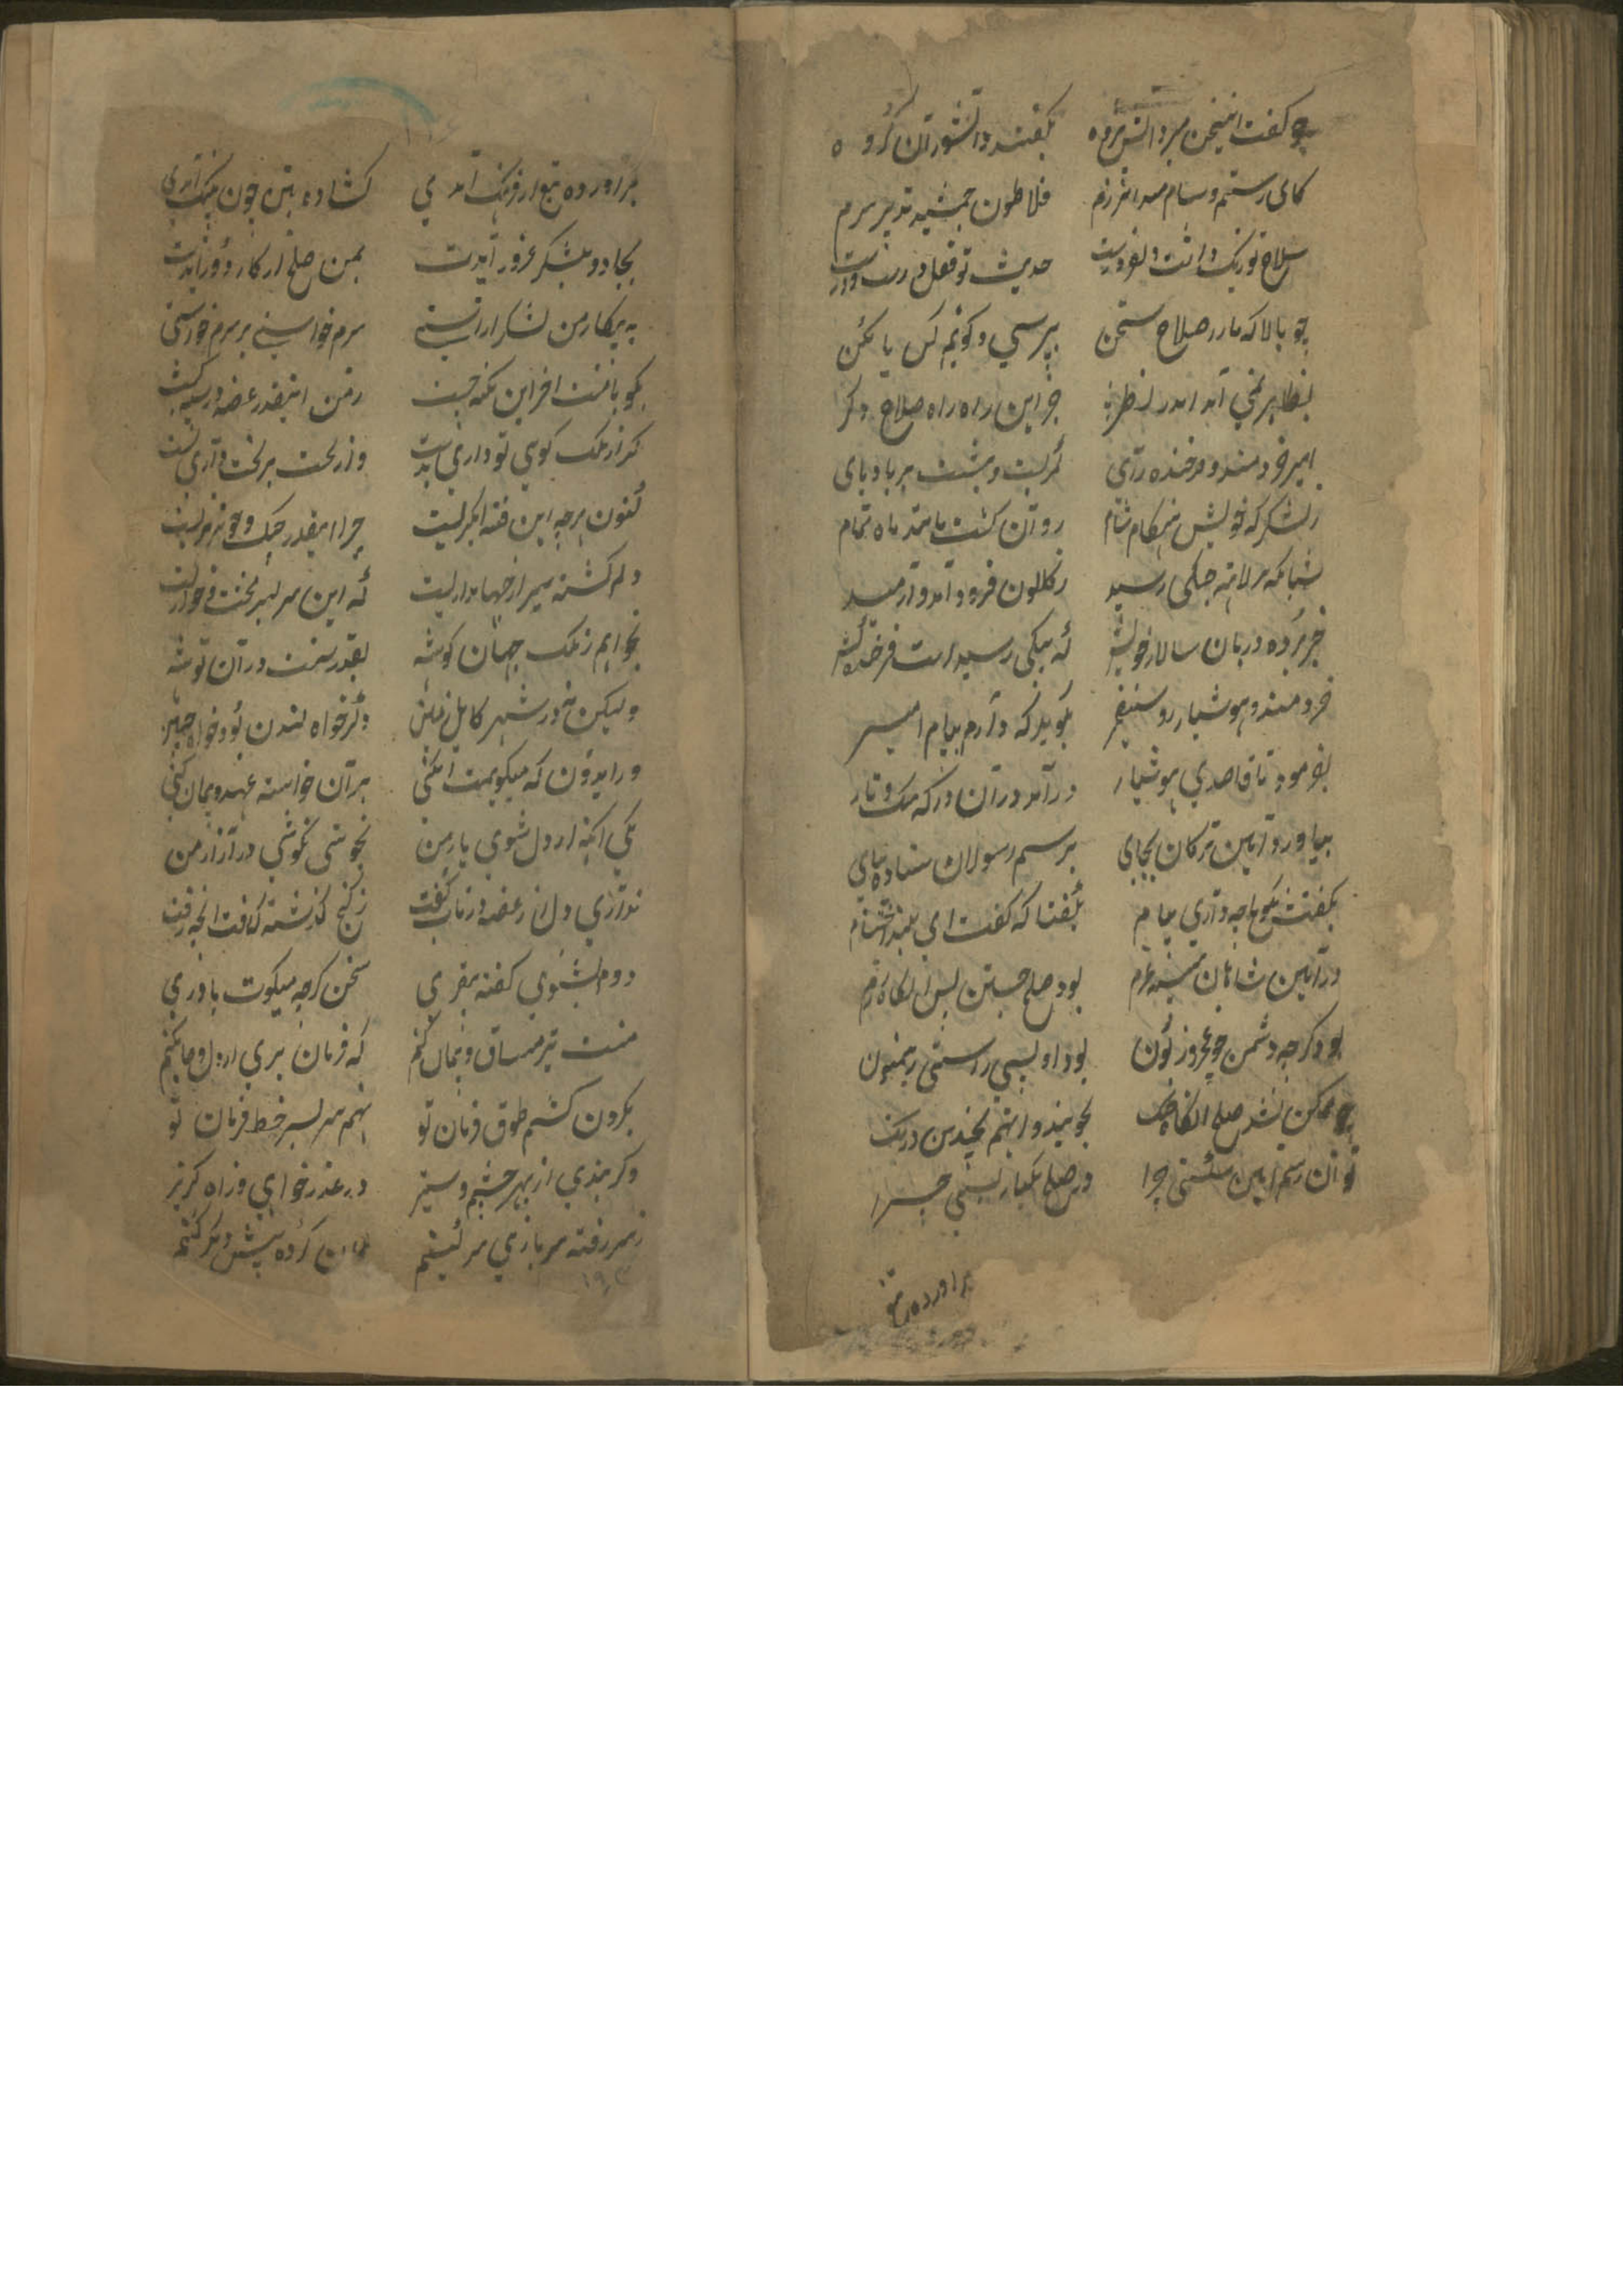 چو گفت این سخن میر دانش پژوه بگفتند دانشوران گروه
کای رستم و سام میدان رزم فلاطون جمشید تدبیر بزم
سلاح تو نیک و حدیث تو قفل در
چو بالا که ما در صلاح سخن بپرسی و گوئیم کن یا مکن
بظاهر نمی آید اندر نظر جز این راه راه صلاح دگر
امیر خردمند و فرخنده رای کمر بست و بنشست بر بادپای
ز لشکرگه خویش هنگام شام روان گشت مانند ماه تمام
شبانگه جنگی رسید ز گلگون فرود آمد و آرمید
خبر برده دربان سالار خویش که پیکی رسیده است فرخنده کیش
خردمند و هوشیار و روشن ضمیر بگوید که دارم پیام امیر
بفرمود تا قاصدی هوشیار درآمد در آن درگه
بیاورد آیین ترکان بجای برسم رسولان ستاده بپای
بگفتش بگو تا چه داری پیام بگفتا که گفت ای بلند احتشام
در آیین شاهان بود صلح جستن پس آنگاه رزم
بود گرچه دشمن چو عجز و زبون بود او بسی راستی رهنمون
چو ممکن نشد صلح آنگاه جنگ بجویند و آنهم بچندین درنگ
تو آن رسم آیین شکستی چرا در صلح یکباره بستی چرا
برآورده تیغ
برآورده تیغ از فرنگ آمدی گشاده بتن چون پلنگ آمدی
بجادو و لشکر غرور آیدت بمن صلح از کار دور آیدت
به پیکار من لشکر آراستی سرم خواستی بر سرم خواستی
بگو با منت آخر این کینه چیست ز من اینقدر غصه در سینه چیست
گر از ملک گوی تو داری بدست وز تخت بر تخت داری نشست
کنون بر چه این فتنه انگیزیست چرا اینقدر جنگ و خونریزیست
دلم گشته سیر از جهانداریست که این سر بسر محنت و خواریست
بخواهم ز ملک جهان گوشه بقدر سمت در آن توشه
ولیکن نه در شهر کابل زمین دگر خواه لندن بود خواه چین
ور ایدون که میگویمت آن کنی بر آن خواسته عهد و پیمان کنی
یکی آنکه از دل شوی یار من نجوشی نکوشی در آزار من
نداری دل از غصه در تاب و تفت ز رنج گذشته که رفت آنچه رفت
دوم بشنوی گفته مفتری سخن گرچه میگوت باوری
منت نیز میثاق و پیمان کنم که فرمان بری از دل و جان کنم
بگردن کشم طوق فرمان تو نهم سر بسر خط فرمان تو
وگر بندی از بهر خشم و ستیز در عذرخواهی و راه گریز
ز سر رفته سربازی سر کنم همان کرده پیش دیگر کنم
۱۹۳